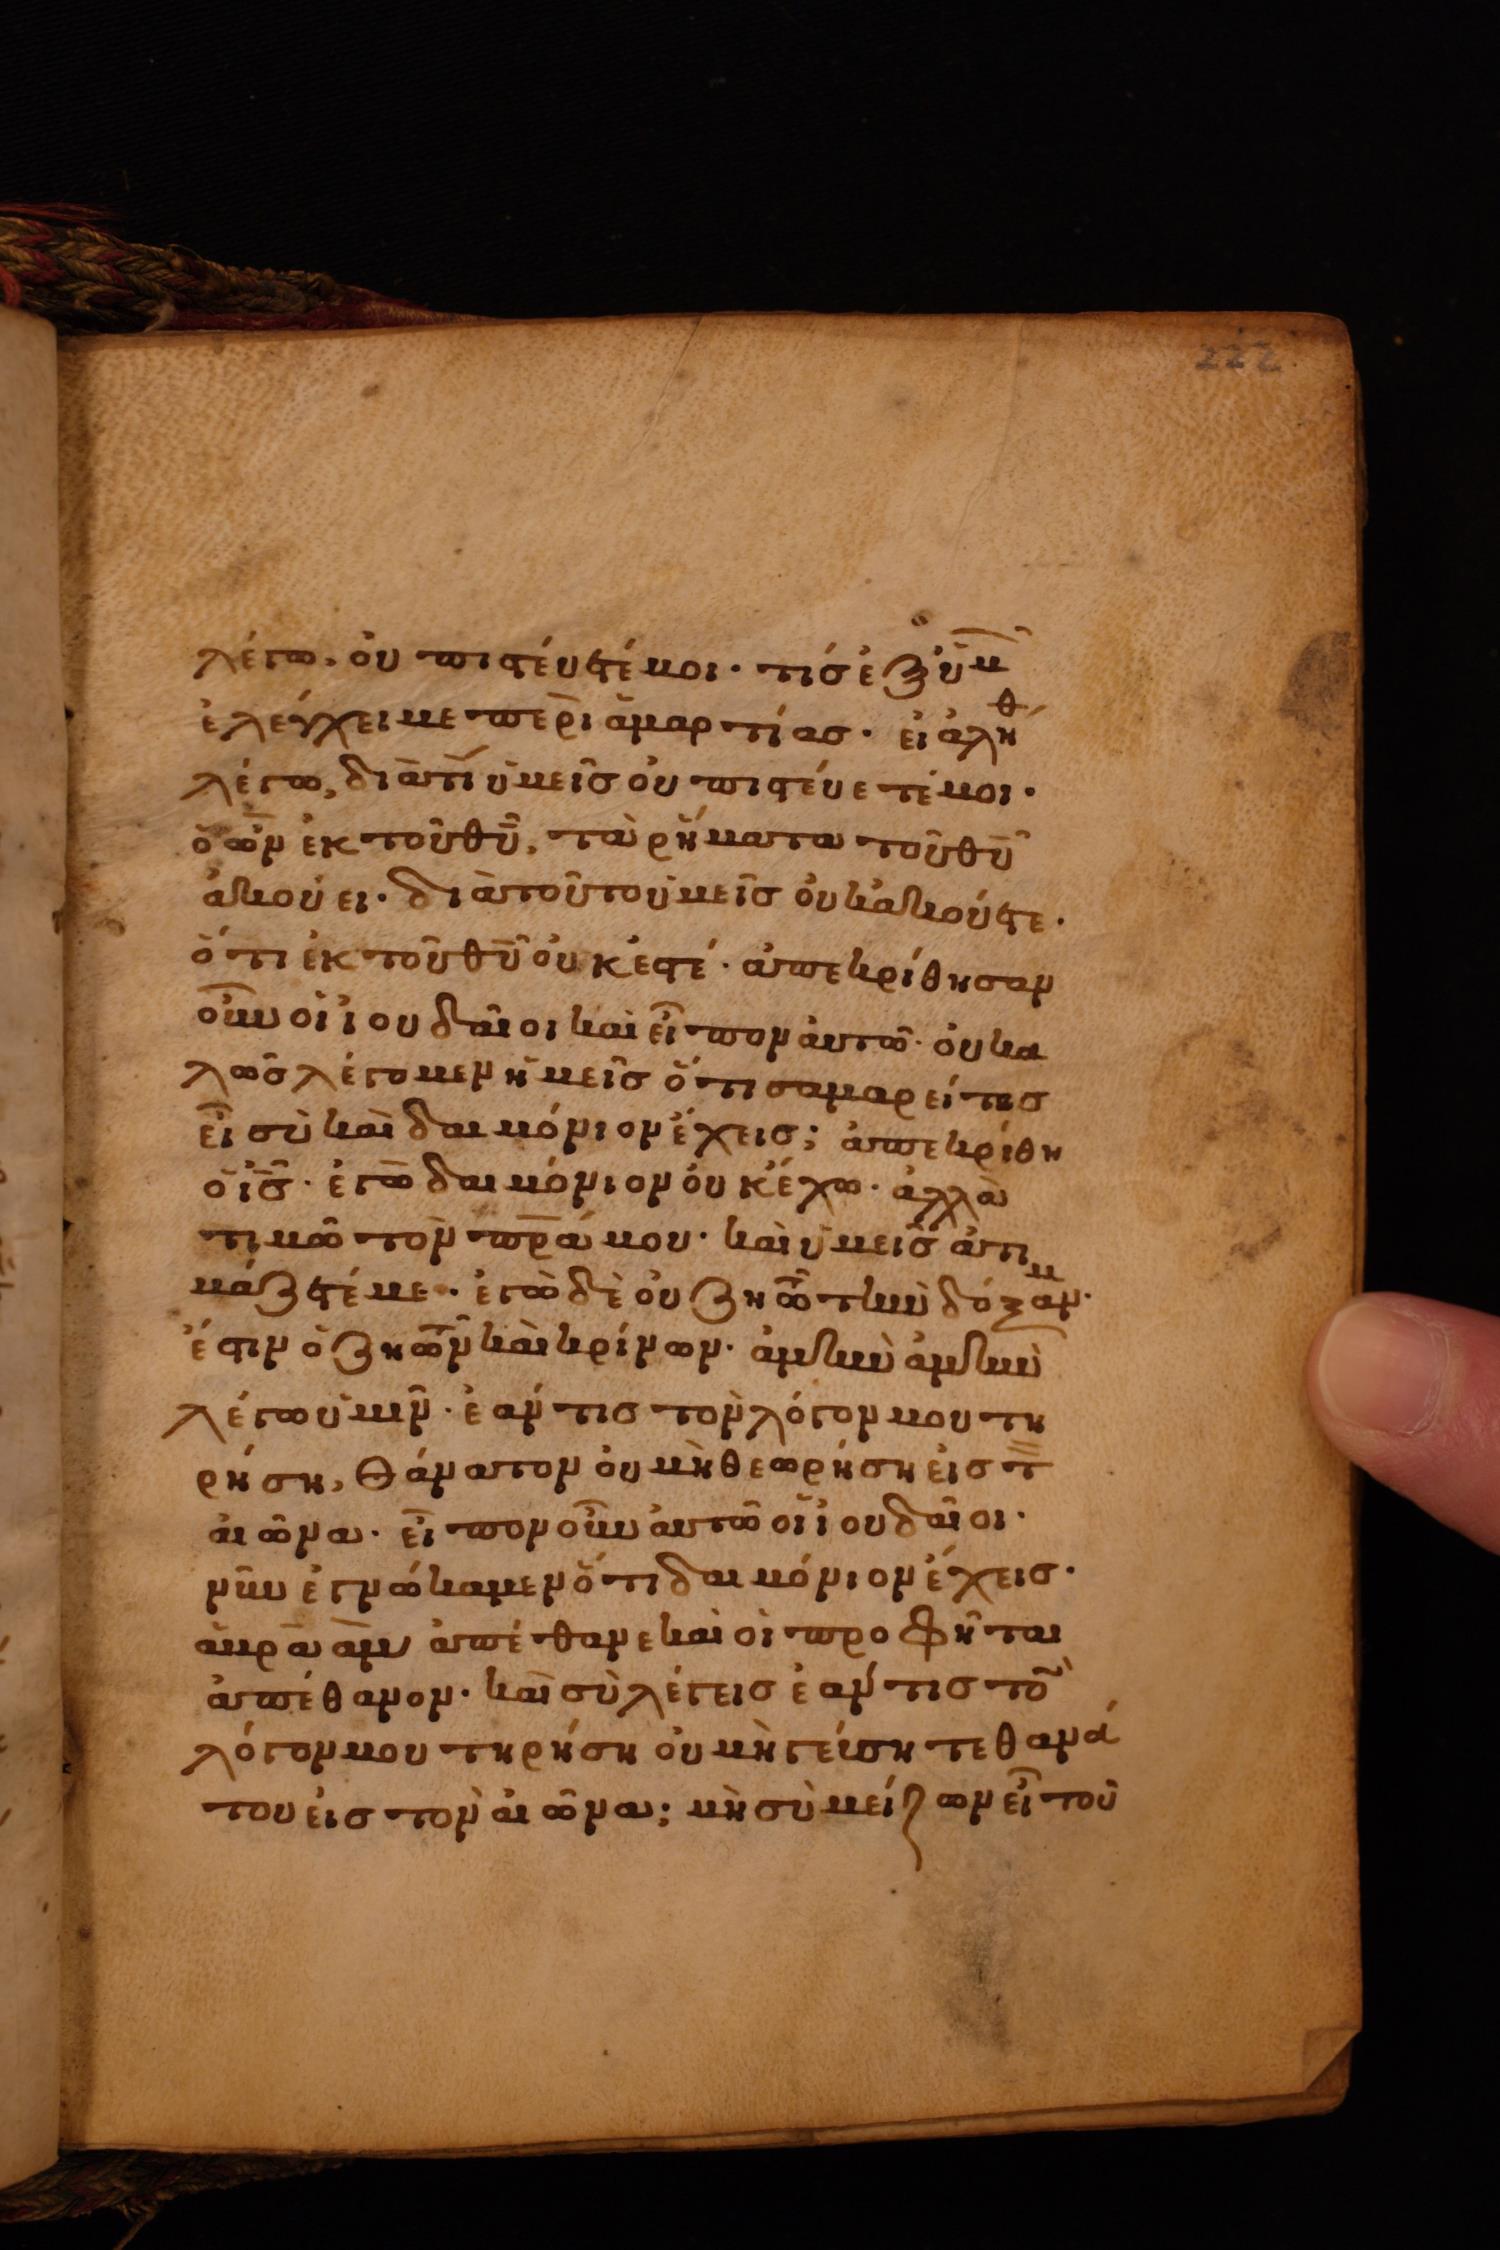 222
λέγω, οὐ πιστεύετέ μοι· τίς ἐξ ὑμ
ἐλέγχει με περὶ ἁμαρτίας· εἰ ἀλήθ
λέγω, διατί ὑμεῖς οὐ πιστεύετέ μοι·
ὁ ὢν ἐκ τοῦ θυ, τὰ ῥήματα τοῦ θυ
ἀκούει· διὰ τοῦτο ὑμεῖς οὐκ ἀκούετε·
ὅτι ἐκ τοῦ θυ οὐκ ἐστέ· ἀπεκρίθησαν
οὖν οἱ ἰουδαῖοι καὶ εἶπον αὐτῶ· οὐ κα
λῶς λέγομεν ἡμεῖς ὅτι σαμαρείτης
εἶ σὺ καὶ δαιμόνιον ἔχεις; ἀπεκρίθη
ὁ ις· ἐγὼ δαιμόνιον οὐκ ἔχω· ἀλλὰ
τιμῶ τὸν πρα μου· καὶ ὑμεῖς ἀτι
μάζετέ με· ἐγὼ δὲ οὐ ζητῶ τὴν δόξαν μ·
ἔστιν ὁ ζητῶν καὶ κρίνων· ἀμὴν ἀμὴν
λέγω ὑμῖν· ἐάν τις τὸν λόγον μου τη
ρήση, θάνατον οὐ μὴ θεωρήση εἰς τ
αἰῶνα· εἶπον οὖν αὐτῶ οἱ ἰουδαῖοι·
νῦν ἐγνώκαμεν ὅτι δαιμόνιον ἔχεις·
ἀβραὰμ ἀπέθανε καὶ οἱ προφῆται
ἀπέθανον· καὶ σὺ λέγεις ἐάν τις το
λόγον μου τηρήση οὐ μὴ γεύσηται θανά
του εἰς τὸν αἰῶνα; μὴ σὺ μείζων εἶ τοῦ